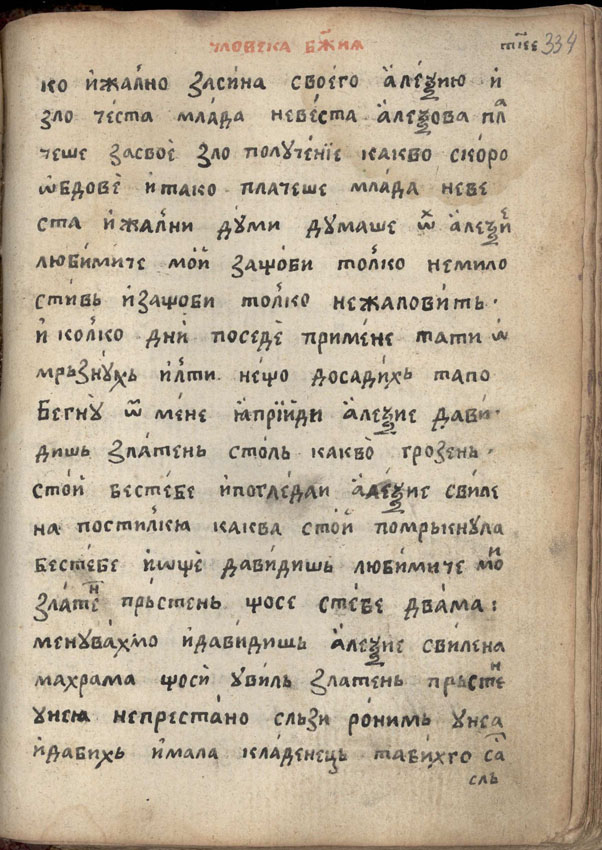 чловека бж҃їꙗ 334
ко ѝжа́лно за́сина своего а҆ле́ѯию ѝ
зло че́ста мла́да неве́ста а҆ле́ѯова пла
чеше засвоѐ зло получе́нїе какво ско́ро
ѡ҆бдовѐ ѝтако плачеше мла́да неве
ста ѝжа́лни ду́ми дума́ше ѡ҆х а҆ле́ѯїе
люби́мите мо́й защоби то́лко немило
стивь ѝзащоби то́лко нежаловить·
ѝ ко́лко днѝ поседѐ примене тати ѡ҆
мрьзнꙋхь ѝлѝти не́що досадихь тапо
бегнꙋ ѿ ме́не ꙗ҆прїѝди а҆ле́ѯие дави́
дишь зла́тень столь какво̀ грозень·
стоѝ бестебе ѝпогледаи а҆ле́ѯие свиле
на постилкѧ каква стоѝ помрькнула
бесте́бе ѝѡщѐ дави́дишь люби́мите мо́и
зла́тень прьстень щосе сте́бе двама:
менува́хмо ѝдавидишь а҆ле́ѯие свилена
махрама щосѝ уви́ль зла́тень прьстень
унею непреста́но сльзи ро́нимь унеа
ѝдабихь ѝмала кладенець таби́хго са
сль